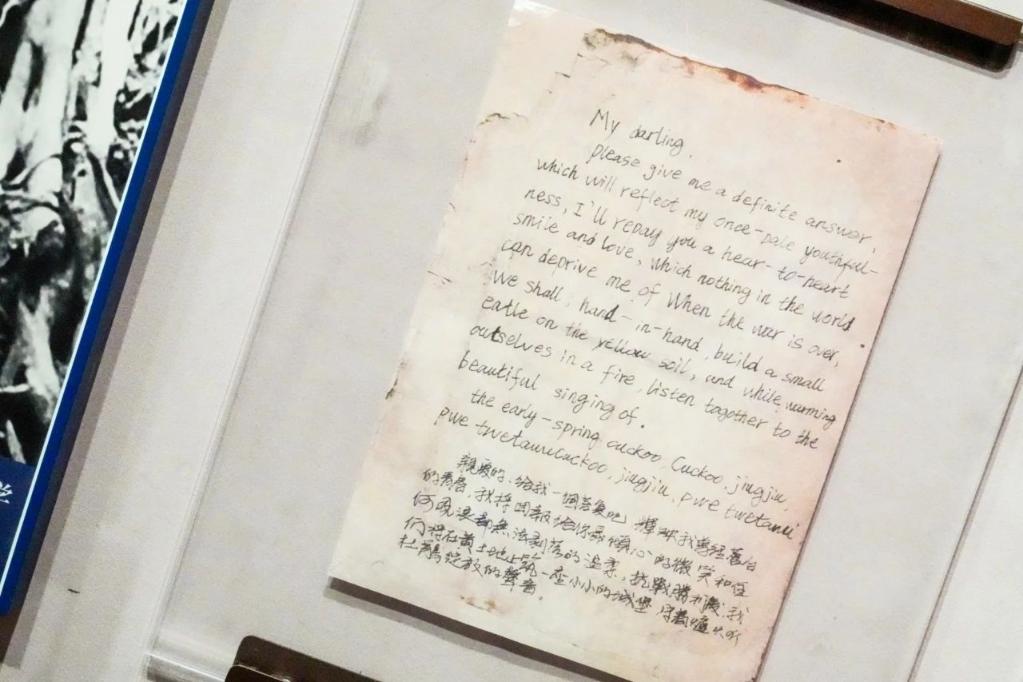 My darling,
please give me a definite answer,
which will reflect my once-pale youthful-
ness, I'll repay you a hear-to-heart
smile and love, which nothing in the world
can deprive me of When the war is over,
We shall, hand-in-hand, build a small
eatle on the yellow soil, and while warming
outselves in a fire, listen together to the
beautiful singing of.
the early-spring cuckoo, Cuckoo, jiugjiu,
pwe twetawucuckoo, jiugjiu, pwe twetawu
親愛的，給我一個答案吧，輝映我曾經蒼白
的青春，我將回報給你最傾心的微笑和任
何現實都無法剝落的溫柔，抗戰勝利後，我
們將在黃土地上築一座小小的城堡，守著爐火听
杜鵑綻放的聲音。